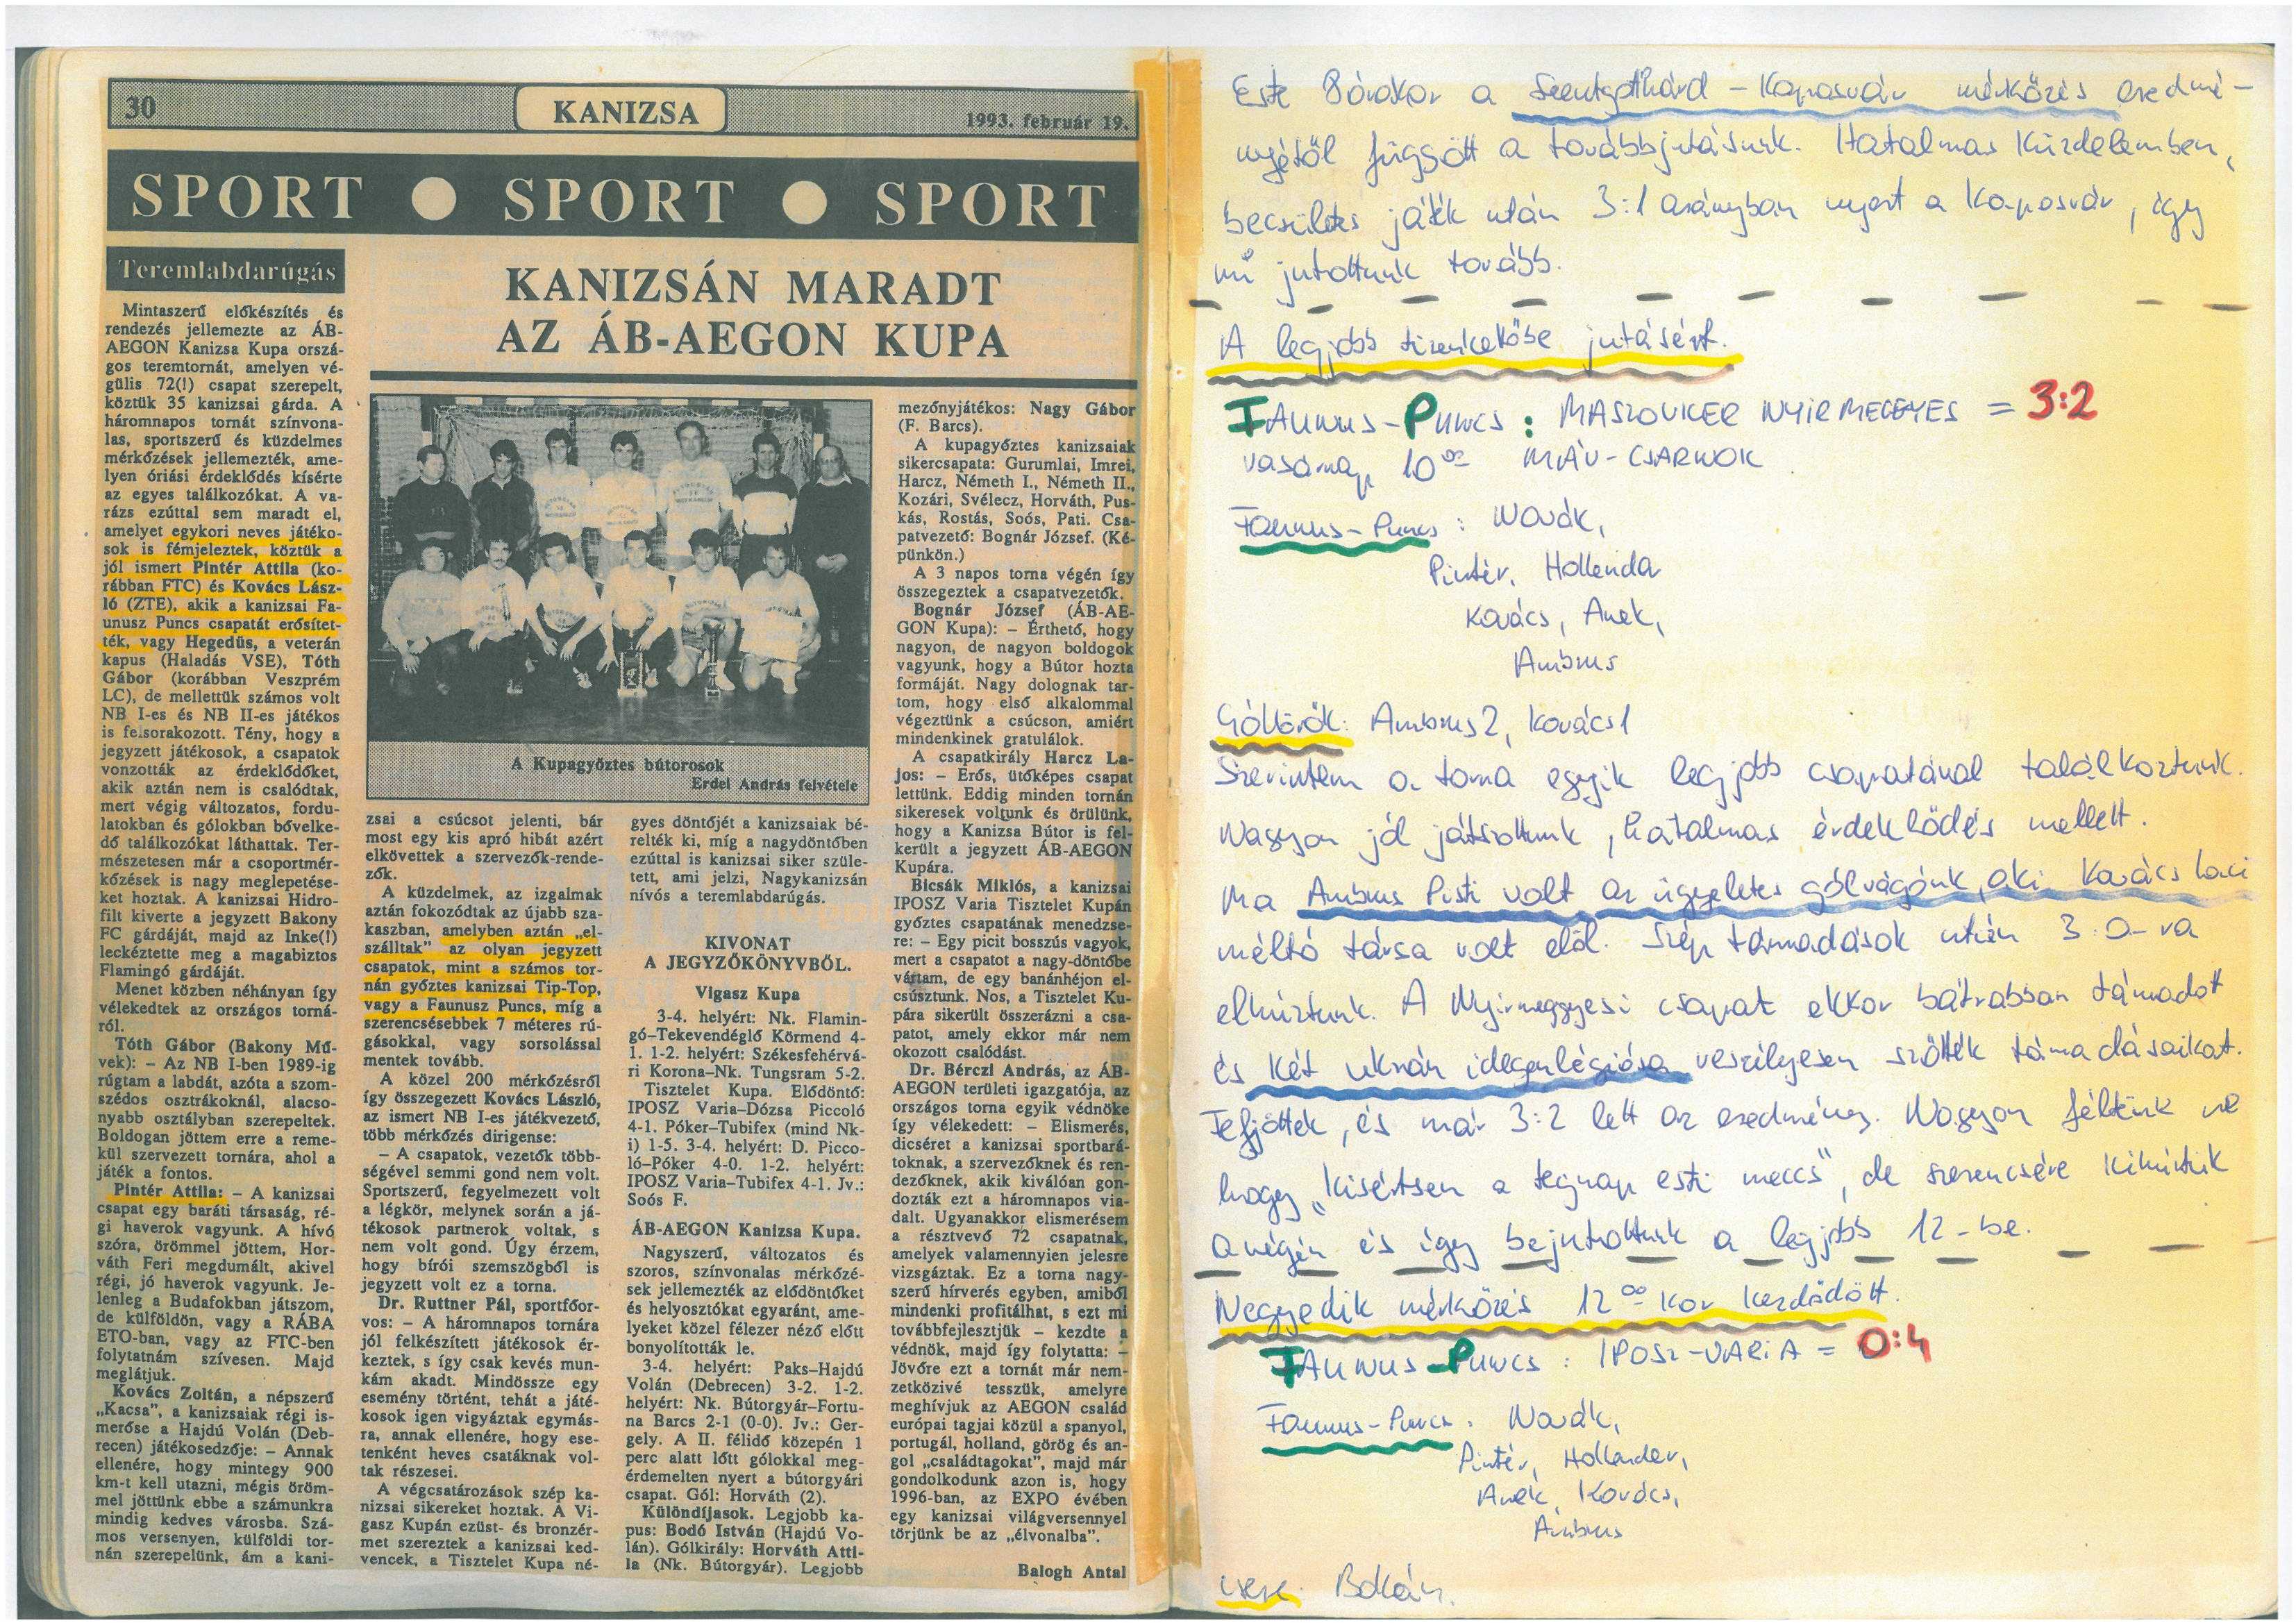 30
KANIZSA
1993. február 19.
SPORT ● SPORT ● SPORT
Teremlabdarúgás
KANIZSÁN MARADT
AZ ÁB-AEGON KUPA
Mintaszerű előkészítés és
rendezés jellemezte az ÁB-
AEGON Kanizsa Kupa orszá-
gos teremtornát, amelyen vé-
gülis 72(!) csapat szerepelt,
köztük 35 kanizsai gárda. A
háromnapos tornát színvona-
las, sportszerű és küzdelmes
mérkőzések jellemezték, ame-
lyen óriási érdeklődés kísérte
az egyes találkozókat. A va-
rázs ezúttal sem maradt el,
amelyet egykori neves játéko-
sok is fémjeleztek, köztük a
jól ismert Pintér Attila (ko-
rábban FTC) és Kovács Lász-
ló (ZTE), akik a kanizsai Fa-
unusz Puncs csapatát erősítet-
ték, vagy Hegedüs, a veterán
kapus (Haladás VSE), Tóth
Gábor (korábban Veszprém
LC), de mellettük számos volt
NB I-es és NB II-es játékos
is felsorakozott. Tény, hogy a
jegyzett játékosok, a csapatok
vonzották az érdeklődőket,
akik aztán nem is csalódtak,
mert végig változatos, fordu-
latokban és gólokban bővelke-
dő találkozókat láthattak. Ter-
mészetesen már a csoportmér-
kőzések is nagy meglepetése-
ket hoztak. A kanizsai Hidro-
filt kiverte a jegyzett Bakony
FC gárdáját, majd az Inke(!)
leckéztette meg a magabiztos
Flamingó gárdáját.
Menet közben néhányan így
vélekedtek az országos torná-
ról.
Tóth Gábor (Bakony Mű-
vek): – Az NB I-ben 1989-ig
rúgtam a labdát, azóta a szom-
szédos osztrákoknál, alacso-
nyabb osztályban szerepeltek.
Boldogan jöttem erre a reme-
kül szervezett tornára, ahol a
játék a fontos.
Pintér Attila: – A kanizsai
csapat egy baráti társaság, ré-
gi haverok vagyunk. A hívó
szóra, örömmel jöttem, Hor-
váth Feri megdumált, akivel
régi, jó haverok vagyunk. Je-
lenleg a Budafokban játszom,
de külföldön, vagy a RÁBA
ETO-ban, vagy az FTC-ben
folytatnám szívesen. Majd
meglátjuk.
Kovács Zoltán, a népszerű
„Kacsa”, a kanizsaiak régi is-
merőse a Hajdú Volán (Deb-
recen) játékosedzője: – Annak
ellenére, hogy mintegy 900
km-t kell utazni, mégis öröm-
mel jöttünk ebbe a számunkra
mindig kedves városba. Szá-
mos versenyen, külföldi tor-
nán szerepelünk, ám a kani-
A Kupagyőztes bútorosok
Erdel András felvétele
zsai a csúcsot jelenti, bár
most egy kis apró hibát azért
elkövettek a szervezők-rende-
zők.
A küzdelmek, az izgalmak
aztán fokozódtak az újabb sza-
kaszban, amelyben aztán „el-
szálltak” az olyan jegyzett
csapatok, mint a számos tor-
nán győztes kanizsai Tip-Top,
vagy a Faunusz Puncs, míg a
szerencsésebbek 7 méteres rú-
gásokkal, vagy sorsolással
mentek tovább.
A közel 200 mérkőzésről
így összegezett Kovács László,
az ismert NB I-es játékvezető,
több mérkőzés dirigense:
– A csapatok, vezetők több-
ségével semmi gond nem volt.
Sportszerű, fegyelmezett volt
a légkör, melynek során a já-
tékosok partnerok voltak, s
nem volt gond. Úgy érzem,
hogy bírói szemszögből is
jegyzett volt ez a torna.
Dr. Ruttner Pál, sportfőor-
vos: – A háromnapos tornára
jól felkészített játékosok ér-
keztek, s így csak kevés mun-
kám akadt. Mindössze egy
esemény történt, tehát a játé-
kosok igen vigyáztak egymás-
ra, annak ellenére, hogy ese-
tenként heves csatáknak vol-
tak részesei.
A végcsatározások szép ka-
nizsai sikereket hoztak. A Vi-
gasz Kupán ezüst- és bronzér-
met szereztek a kanizsai ked-
vencek, a Tisztelet Kupa né-
gyes döntőjét a kanizsaiak bé-
relték ki, míg a nagydöntőben
ezúttal is kanizsai siker szüle-
tett, ami jelzi, Nagykanizsán
nívós a teremlabdarúgás.
KIVONAT
A JEGYZŐKÖNYVBŐL.
Vigasz Kupa
3-4. helyért: Nk. Flamin-
gó–Tekevendéglő Körmend 4-
1. 1-2. helyért: Székesfehérvá-
ri Korona–Nk. Tungsram 5-2.
Tisztelet Kupa. Elődöntő:
IPOSZ Varia–Dózsa Piccoló
4-1. Póker–Tubifex (mind Nk-
i) 1-5. 3-4. helyért: D. Picco-
ló–Póker 4-0. 1-2. helyért:
IPOSZ Varia–Tubifex 4-1. Jv.:
Soós F.
ÁB-AEGON Kanizsa Kupa.
Nagyszerű, változatos és
szoros, színvonalas mérkőzé-
sek jellemezték az elődöntőket
és helyosztókat egyaránt, ame-
lyeket közel félezer néző előtt
bonyolították le.
3-4. helyért: Paks–Hajdú
Volán (Debrecen) 3-2. 1-2.
helyért: Nk. Bútorgyár–Fortu-
na Barcs 2-1 (0-0). Jv.: Ger-
gely. A II. félidő közepén 1
perc alatt lőtt gólokkal meg-
érdemelten nyert a bútorgyári
csapat. Gól: Horváth (2).
Különdíjasok. Legjobb ka-
pus: Bodó István (Hajdú Vo-
lán). Gólkirály: Horváth Atti-
la (Nk. Bútorgyár). Legjobb
mezőnyjátékos: Nagy Gábor
(F. Barcs).
A kupagyőztes kanizsaiak
sikercsapata: Gurumlai, Imrei,
Harcz, Németh I., Németh II.,
Kozári, Svélecz, Horváth, Pus-
kás, Rostás, Soós, Pati. Csa-
patvezető: Bognár József. (Ké-
pünkön.)
A 3 napos torna végén így
összegeztek a csapatvezetők.
Bognár József (ÁB-AE-
GON Kupa): – Érthető, hogy
nagyon, de nagyon boldogok
vagyunk, hogy a Bútor hozta
formáját. Nagy dolognak tar-
tom, hogy első alkalommal
végeztünk a csúcson, amiért
mindenkinek gratulálok.
A csapatkirály Harcz La-
jos: – Erős, ütőképes csapat
lettünk. Eddig minden tornán
sikeresek voltunk és örülünk,
hogy a Kanizsa Bútor is fel-
került a jegyzett ÁB-AEGON
Kupára.
Bicsák Miklós, a kanizsai
IPOSZ Varia Tisztelet Kupán
győztes csapatának menedzse-
re: – Egy picit bosszús vagyok,
mert a csapatot a nagy-döntőbe
vártam, de egy banánhéjon el-
csúsztunk. Nos, a Tisztelet Ku-
pára sikerült összerázni a csa-
patot, amely ekkor már nem
okozott csalódást.
Dr. Bérczi András, az ÁB-
AEGON területi igazgatója, az
országos torna egyik védnöke
így vélekedett: – Elismerés,
dicséret a kanizsai sportbará-
toknak, a szervezőknek és ren-
dezőknek, akik kiválóan gon-
dozták ezt a háromnapos via-
dalt. Ugyanakkor elismerésem
a résztvevő 72 csapatnak,
amelyek valamennyien jelesre
vizsgáztak. Ez a torna nagy-
szerű hírverés egyben, amiből
mindenki profitálhat, s ezt mi
továbbfejlesztjük – kezdte a
védnök, majd így folytatta: –
Jövőre ezt a tornát már nem-
zetközivé tesszük, amelyre
meghívjuk az AEGON család
európai tagjai közül a spanyol,
portugál, holland, görög és an-
gol „családtagokat”, majd már
gondolkodunk azon is, hogy
1996-ban, az EXPO évében
egy kanizsai világversennyel
törjünk be az „élvonalba”.
Balogh Antal
Este 8 órakor a Szentgothárd – Kaposvár mérkőzés eredmé-
nyétől függött a továbbjutásunk. Hatalmas küzdelemben,
becsületes játék után 3:1 arányban nyert a Kaposvár, így
mi jutottunk tovább.
A legjobb tizenkettőbe jutásért.
FAUNUS-PUNCS : MASZOVKER NYÍRMEGGYES = 3:2
vasárnap 10⁰⁰ MÁV-CSARNOK
Faunus-Puncs : Novák,
Pintér, Hollenda
Kovács, Anek,
Ambrus
Góllövők: Ambrus 2, Kovács 1
Szerintem a torna egyik legjobb csapatával találkoztunk.
Nagyon jól játszottunk, hatalmas érdeklődés mellett.
Ma Ambrus Pisti volt az ügyeletes gólvágónk, aki Kovács Laci
méltó társa volt elöl. Szép támadások után 3:0-ra
elhúztunk. A Nyírmeggyesi csapat ekkor bátrabban támadott
és két ukrán idegenlégiósa veszélyesen szőtték támadásaikat.
Feljöttek, és már 3:2 lett az eredmény. Nagyon féltünk ne
hogy „kisértsen a tegnap esti meccs”, de szerencsére kihúztuk
a végén és így bejutottunk a legjobb 12-be.
Negyedik mérkőzés 12⁰⁰-kor kezdődött.
FAUNUS-PUNCS : IPOSZ-VARIA = 0:4
Faunus-Puncs : Novák,
Pintér, Hollender,
Anek, Kovács,
Ambrus
csere: Bollán.